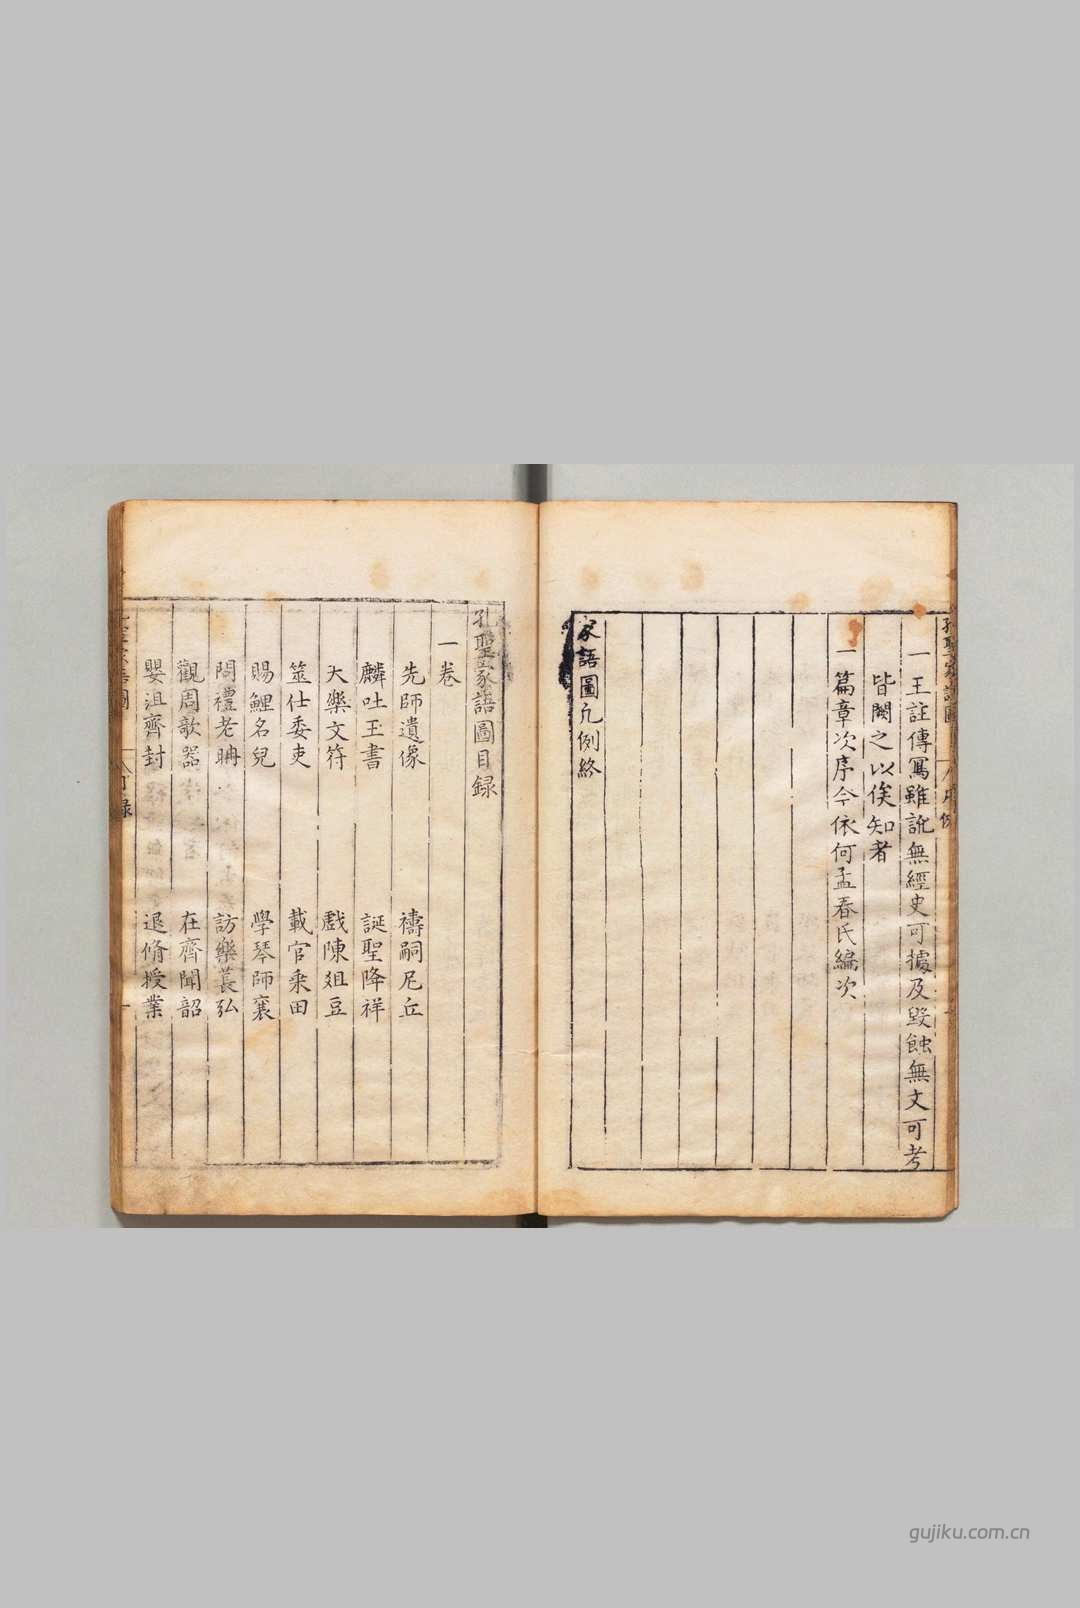 一王註傳寫雖訛無經史可據及毀蝕無文可考
皆闕之以俟知者
一篇章次序今依何孟春氏編次
家語圖凡例終
孔聖家語圖目録
一卷
先師遺像 禱嗣尼丘
麟吐玉書 誕聖降祥
大樂文符 戲陳俎豆
筮仕委吏 載官乘田
賜鯉名兒 學琴師襄
問禮老聃 訪樂萇弘
觀周欹器 在齊聞韶
嬰沮齊封 退脩授業
gujiku.com.cn